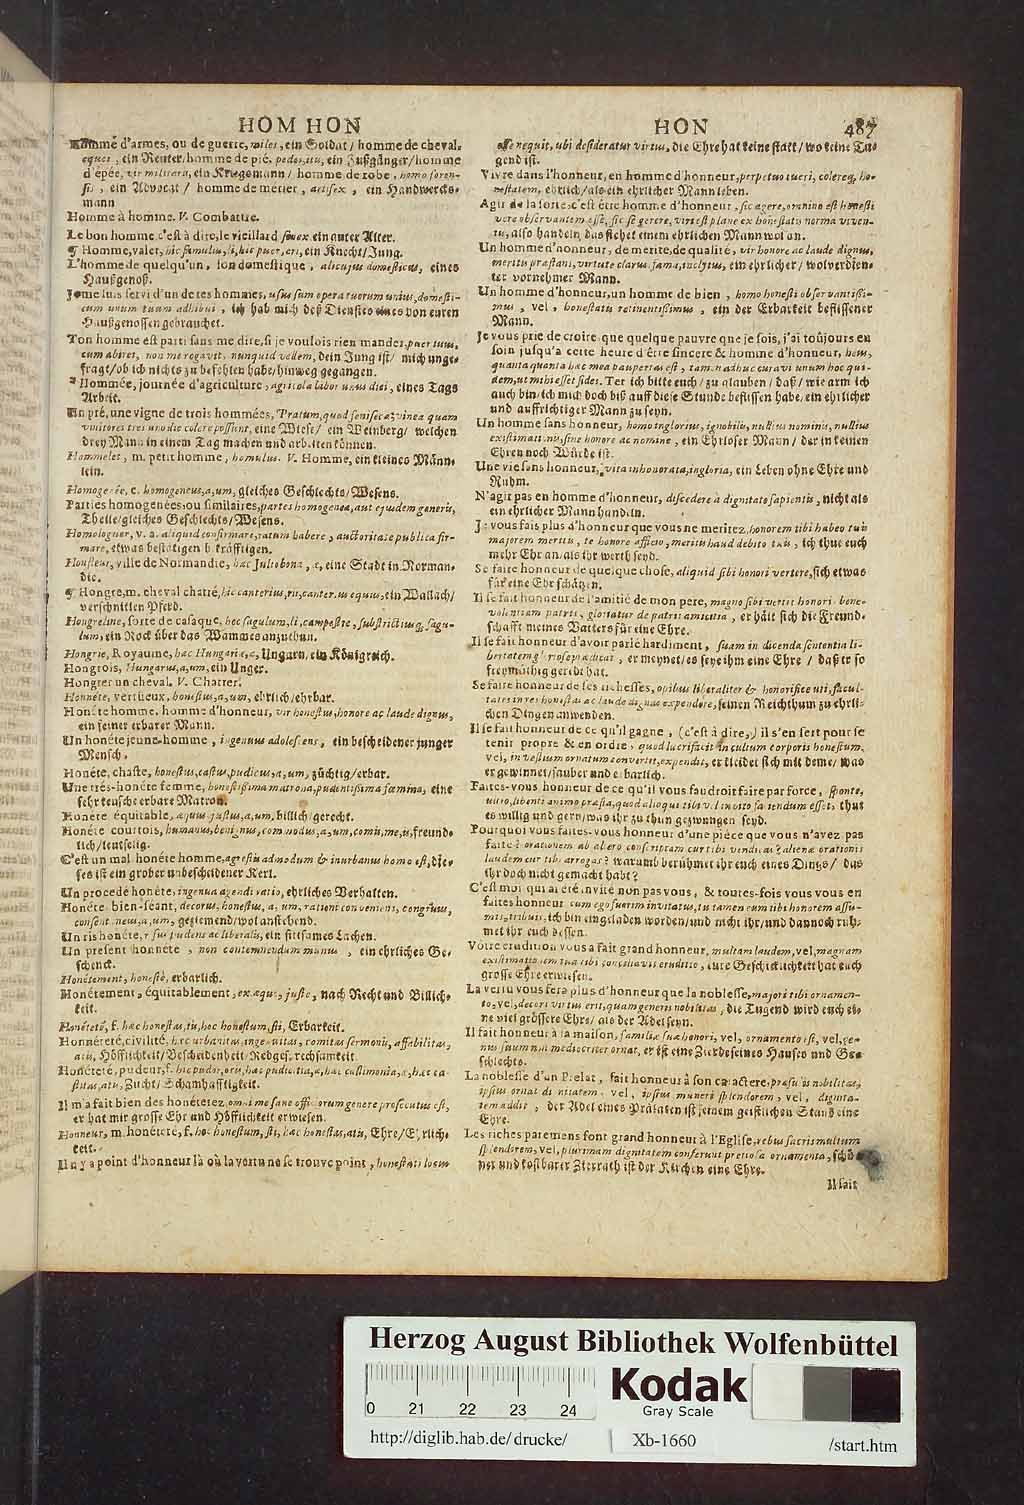 HOM HON
HON
487
Homme d'armes, ou de guerre, miles, ein Soldat/ homme de cheval,
eques, ein Reuter/ homme de pié, pedes, itis, ein Fußgänger/ homme
d'épée, vir militaris, ein Kriegsmann/ homme de robe, homo foren-
sis, ein Advocat/ homme de métier, artifex, ein Handwercks-
mann
Homme à homme. V. Combattre.
Le bon homme, c'est à dire, le vieillard senex ein guter Alter.
¶ Homme, valet, hic famulus, li, hic puer, eri, ein Knecht/ Jung.
L'homme de quelqu'un, son domestique, alicujus domesticus, eines
Haußgenoß.
Je me suis servi d'un de tes hommes, usus sum opera tuorum unius, domesti-
cum unum tuum adhibui, ich hab mich deß Dienstes eines von euren
Haußgenossen gebrauchet.
Ton homme est parti sans me dire, si je voulois rien mander, puer tuus,
cum abiret, non me rogavit, nunquid vellem, dein Jung ist/ mich unge-
fragt/ ob ich nichts zu befehlen habe/ hinweg gegangen.
Hommée, journée d'agriculture, agricolæ labor unius diei, eines Tags
Arbeit.
Un pré, une vigne de trois hommées, Pratum, quod seniseca, vinea quam
vinitores tres uno die colere possunt, eine Wiese/ ein Weinberg/ welchen
drey Mann in einem Tag machen und arbeiten können.
Hommelet, m. petit homme, homulus. V. Homme, ein kleines Männ-
lein.
Homogenée, c. homogeneus, a, um, gleiches Geschlechts/ Wesens.
Parties homogenées, ou similaires, partes homogeneæ, aut ejusdem generis,
Theile/ gleiches Geschlechts/ Wesens.
Homologuer, v. a. aliquid confirmare, ratum habere, auctoritate publica fir-
mare, etwas bestätigen bekräfftigen.
Honfleur, ville de Normandie, hæc Juliobona, æ, eine Stadt in Norman-
die.
¶ Hongre, m. cheval chatré, hic canterius, rii, canterius equus, ein Wallach/
verschnitten Pferd.
Hongreline, sorte de casaque, hoc sagulum, li, campestre, substrictius sagu-
lum, ein Rock über das Wammes anzuthun.
Hongrie, Royaume, hæc Hungaria, æ, Ungarn, ein Königreich.
Hongrois, Hungarus, a, um, ein Unger.
Hongrer un cheval. V. Chatrer.
Honnéte, vertueux, honestus, a, um, ehrlich/ ehrbar.
Honéte homme, homme d'honneur, vir honestus, honore ac laude dignus,
ein feiner erbarer Mann.
Un honéte jeune-homme, ingenuus adolescens, ein bescheidener junger
Mensch.
Honéte, chaste, honestus, castus, pudicus, a, um, züchtig/ erbar.
Une trés-honéte femme, honestissima matrona, pudentissima fœmina, eine
sehr keusche erbare Matron.
Honéte équitable, æquus, justus, a, um, billich/ gerecht.
Honéte courtois, humanus, benignus, commodus, a, um, comis, me, is, freund-
lich/ leutselig.
C'est un mal honéte homme, agrestis admodum & inurbanus homo est, die-
ses ist ein grober unbescheidener Kerl.
Un procedé honéte, ingenua agendi ratio, ehrliches Verhalten.
Honéte, bien-séant, decorus, honestus, a, um, rationi conveniens, congruus,
consentaneus, a, um, geziemend/ wol anstehend.
Un ris honéte, risus pudens ac liberalis, ein sittsames Lachen.
Un present honéte, non contemnendum munus, ein ehrliches Ge-
schenck.
Honétement, honestè, erbarlich.
Honétement, équitablement, ex æquo, justè, nach Recht und Billich-
keit.
Honéteté, f. hæc honestas, tis, hoc honestum, sti, Erbarkeit.
Honnéreté, civilité, hæc urbanitas, ingenuitas, comitas sermonis, affabilitas,
atis, Höfflichkeit/ Bescheidenheit/ Redges. rechsamkeit
Honéteté, pudeur, f. hic pudor, oris, hæc pudicitia, æ, hæc castimonia, æ, hæc ca-
stitas, atis, Zucht/ Schamhafftigkeit.
Il m'a fait bien des honétetez, omni me sane officiorum genere prosecutus est,
er hat mir grosse Ehr und Höfflichkeit erwiesen.
Honneur, m. honéteté, f. hoc honestum, sti, hæc honestas, atis, Ehre/ Ehrlich-
keit.
Il n'y a point d'honneur là où la vertu ne se trouve point, honestati locus
esse nequit, ubi desideratur virtus, die Ehre hat keine statt/ wo keine Tu-
gend ist.
Vivre dans l'honneur, en homme d'honneur, perpetuo tueri, colereq, ho-
nestatem, ehrlich/ als ein ehrlicher Mann leben.
Agir de la sorte, c'est être homme d'honneur, sic agere, omnino est honesti
vere observantem esse, sic se gerere, viri est plane ex honestatis norma viven-
tis, also handeln das stehet einem ehrlichen Mann wol an.
Un homme d'honneur, de merite, de qualité, vir honore ac laude dignus,
meritis præstans, virtute clarus, fama, inclytus, ein ehrlicher/ wolverdien-
ter vornehmer Mann.
Un homme d'honneur, un homme de bien, homo honesti observantissi-
mus, vel, honestatis retinentissimus, ein der Erbarkeit beflissener
Mann.
Je vous prie de croire que quelque pauvre que je sois, j'ai toûjours eu
soin jusqu'a cette heure d'être sincere & homme d'honneur, heus,
quanta quanta hæc mea paupertas est, tamen adhuc curavi unum hoc qui-
dem, ut mihi esset fides. Ter ich bitte euch/ zu glauben/ daß/ wie arm ich
auch bin/ ich mich doch biß auff diese Stunde beflissen habe, ein ehrlicher
und auffrichtiger Mann zu seyn.
Un homme sans honneur, homo inglorius, ignobilis, nullius nominis, nullius
existimationis, sine honore ac nomine, ein Ehrloser Mann/ der in keinen
Ehren noch Würde ist.
Une vie sans honneur, vita inhonorata, ingloria, ein Leben ohne Ehre und
Ruhm.
N'agit pas en homme d'honneur, discedere à dignitate sapientis, nicht als
ein ehrlicher Mann handeln.
Je vous fais plus d'honneur que vous ne meritez, honorem tibi habeo tuis
majorem meritis, te honore afficio, meritis haud debito tuis, ich thue euch
mehr Ehr an/ als ihr werth seyd.
Se faire honneur de quelque chose, aliquid sibi honori vertere, sich etwas
für eine Ehr schätzen.
Il se fait honneur de l'amitié de mon pere, magno sibi vertit honori bene-
volentiam patris, gloriatur de patris amicitia, er hält sich die Freund-
schafft meines Vatters für eine Ehre.
Il se fait honneur d'avoir parlé hardiment, suam in dicenda sententia li-
bertatem gloriose prædicat, er meynet/ es seye ihm eine Ehre/ daß er so
freymüthig geredt hat.
Se faire honneur de ses richesses, opibus liberaliter & honorifice uti, facul-
tates in res honestas ac laude dignas expendere, seinen Reichthum zu ehrli-
chen Dingen anwenden.
Il se fait honneur de ce qu'il gagne, (c'est à dire,) il s'en sert pour se
tenir propre & en ordre, quod lucrifacit in cultum corporis honestum,
vel, in vestium ornatum convertit, expendit, er kleidet sich mit deme/ was
er gewinnet/ sauber und erbarlich.
Faites-vous honneur de ce qu'il vous faudroit faire par force, sponte,
ultro, libenti animo præsta, quod alioqui tibi vel invito faciendum esset, thut
es willig und gern/ was ihr zu thun gezwungen seyd.
Pourquoi vous faites-vous honneur d'une piéce que vous n'avez pas
faite? orationem ab altero conscriptam cur tibi vendicas? alienæ orationis
laudem cur tibi arrogas? warumb berühmet ihr euch eines Dings/ das
ihr doch nicht gemacht habt?
C'est moi qui ai été invité non pas vous, & toutes-fois vous vous en
faites honneur cum ego fuerim invitatus, tu tamen eum tibi honorem assu-
mis, tribuis, ich bin eingeladen worden/ und nicht ihr/ und dannoch rüh-
met ihr euch dessen.
Vôtre erudition vous a fait grand honneur, multam laudem, vel, magnam
existimationem tua tibi conciliavit eruditio, eure Geschicklichkeit hat euch
grosse Ehre erwiesen.
La vertu vous fera plus d'honneur que la noblesse, majori tibi ornamen-
to, vel, decori virtus erit, quam generis nobilitas, die Tugend wird euch ei-
ne viel grössere Ehre/ als der Adel seyn.
Il fait honneur à la maison, familiæ suæ honori, vel, ornamento est, vel, ge-
nus suum non mediocriter ornat, er ist eine Zierde seines Hauses und Ge-
schlechts.
La noblesse d'un Prelat, fait honneur à son caractere, præsulis nobilitas,
ipsius ornat dignitatem, vel, ipsius muneri splendorem, vel, dignita-
tem addit, der Adel eines Prälaten ist seinem geistlichen Stand eine
Ehre.
Les riches paremens font grand honneur à l'Eglise, rebus sacris multum
splendorem, vel, plurimam dignitatem conferunt pretiosa ornamenta, schö-
ner und kostbarer Zierrath ist der Kirchen eine Ehre.
Il fait
Herzog August Bibliothek Wolfenbüttel
0 21 22 23 24
Kodak
Gray Scale
http://diglib.hab.de/drucke/ Xb-1660 /start.htm